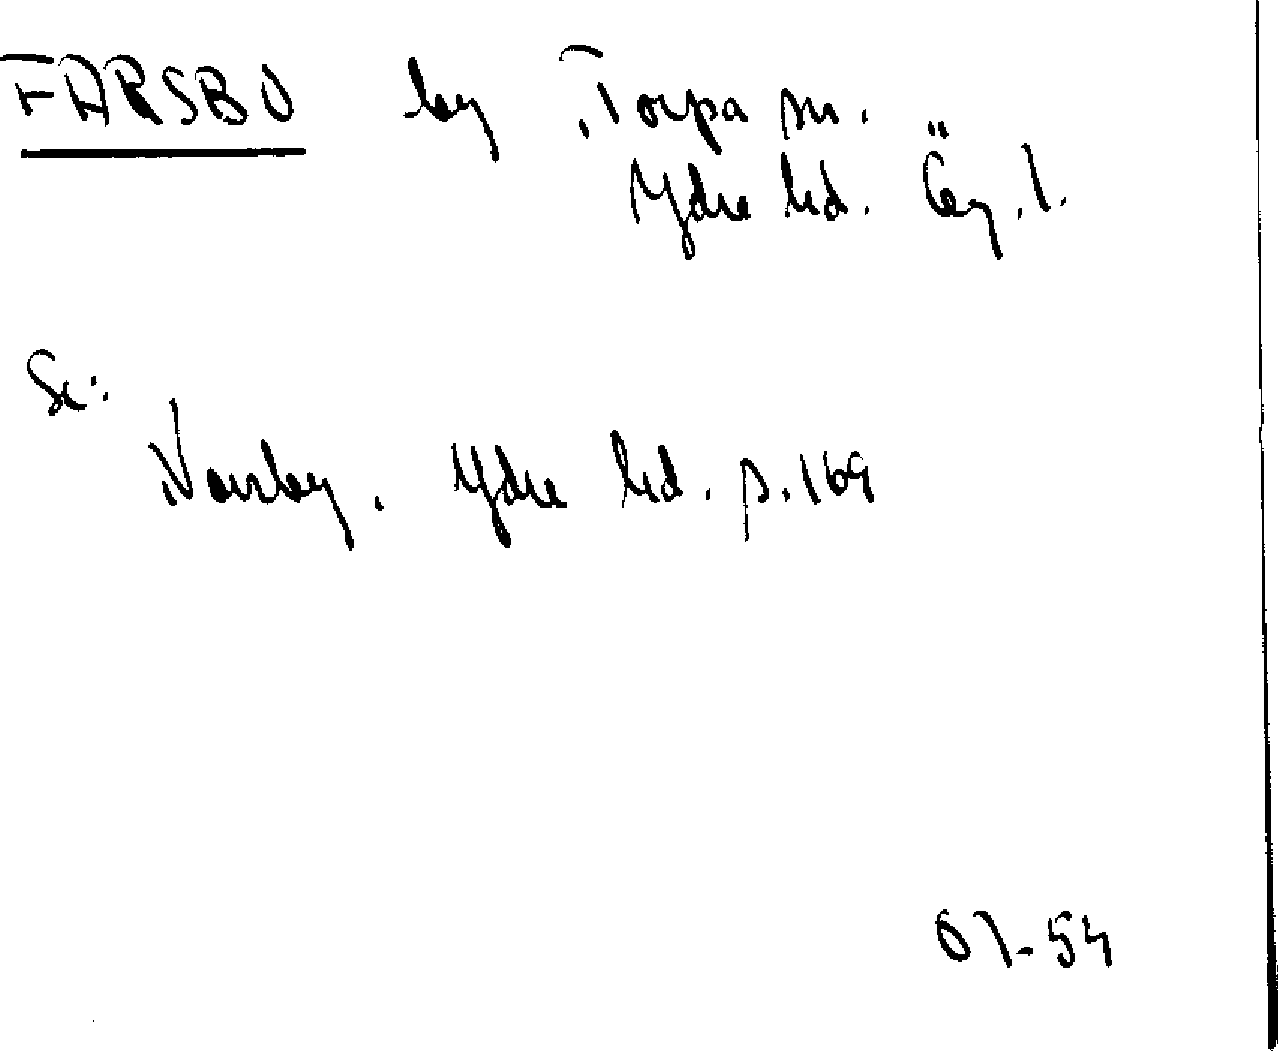 FARSBO by Torpa sn.
Ydre hd. Ög. l.
Se:
Norrby. Ydre hd. p. 169